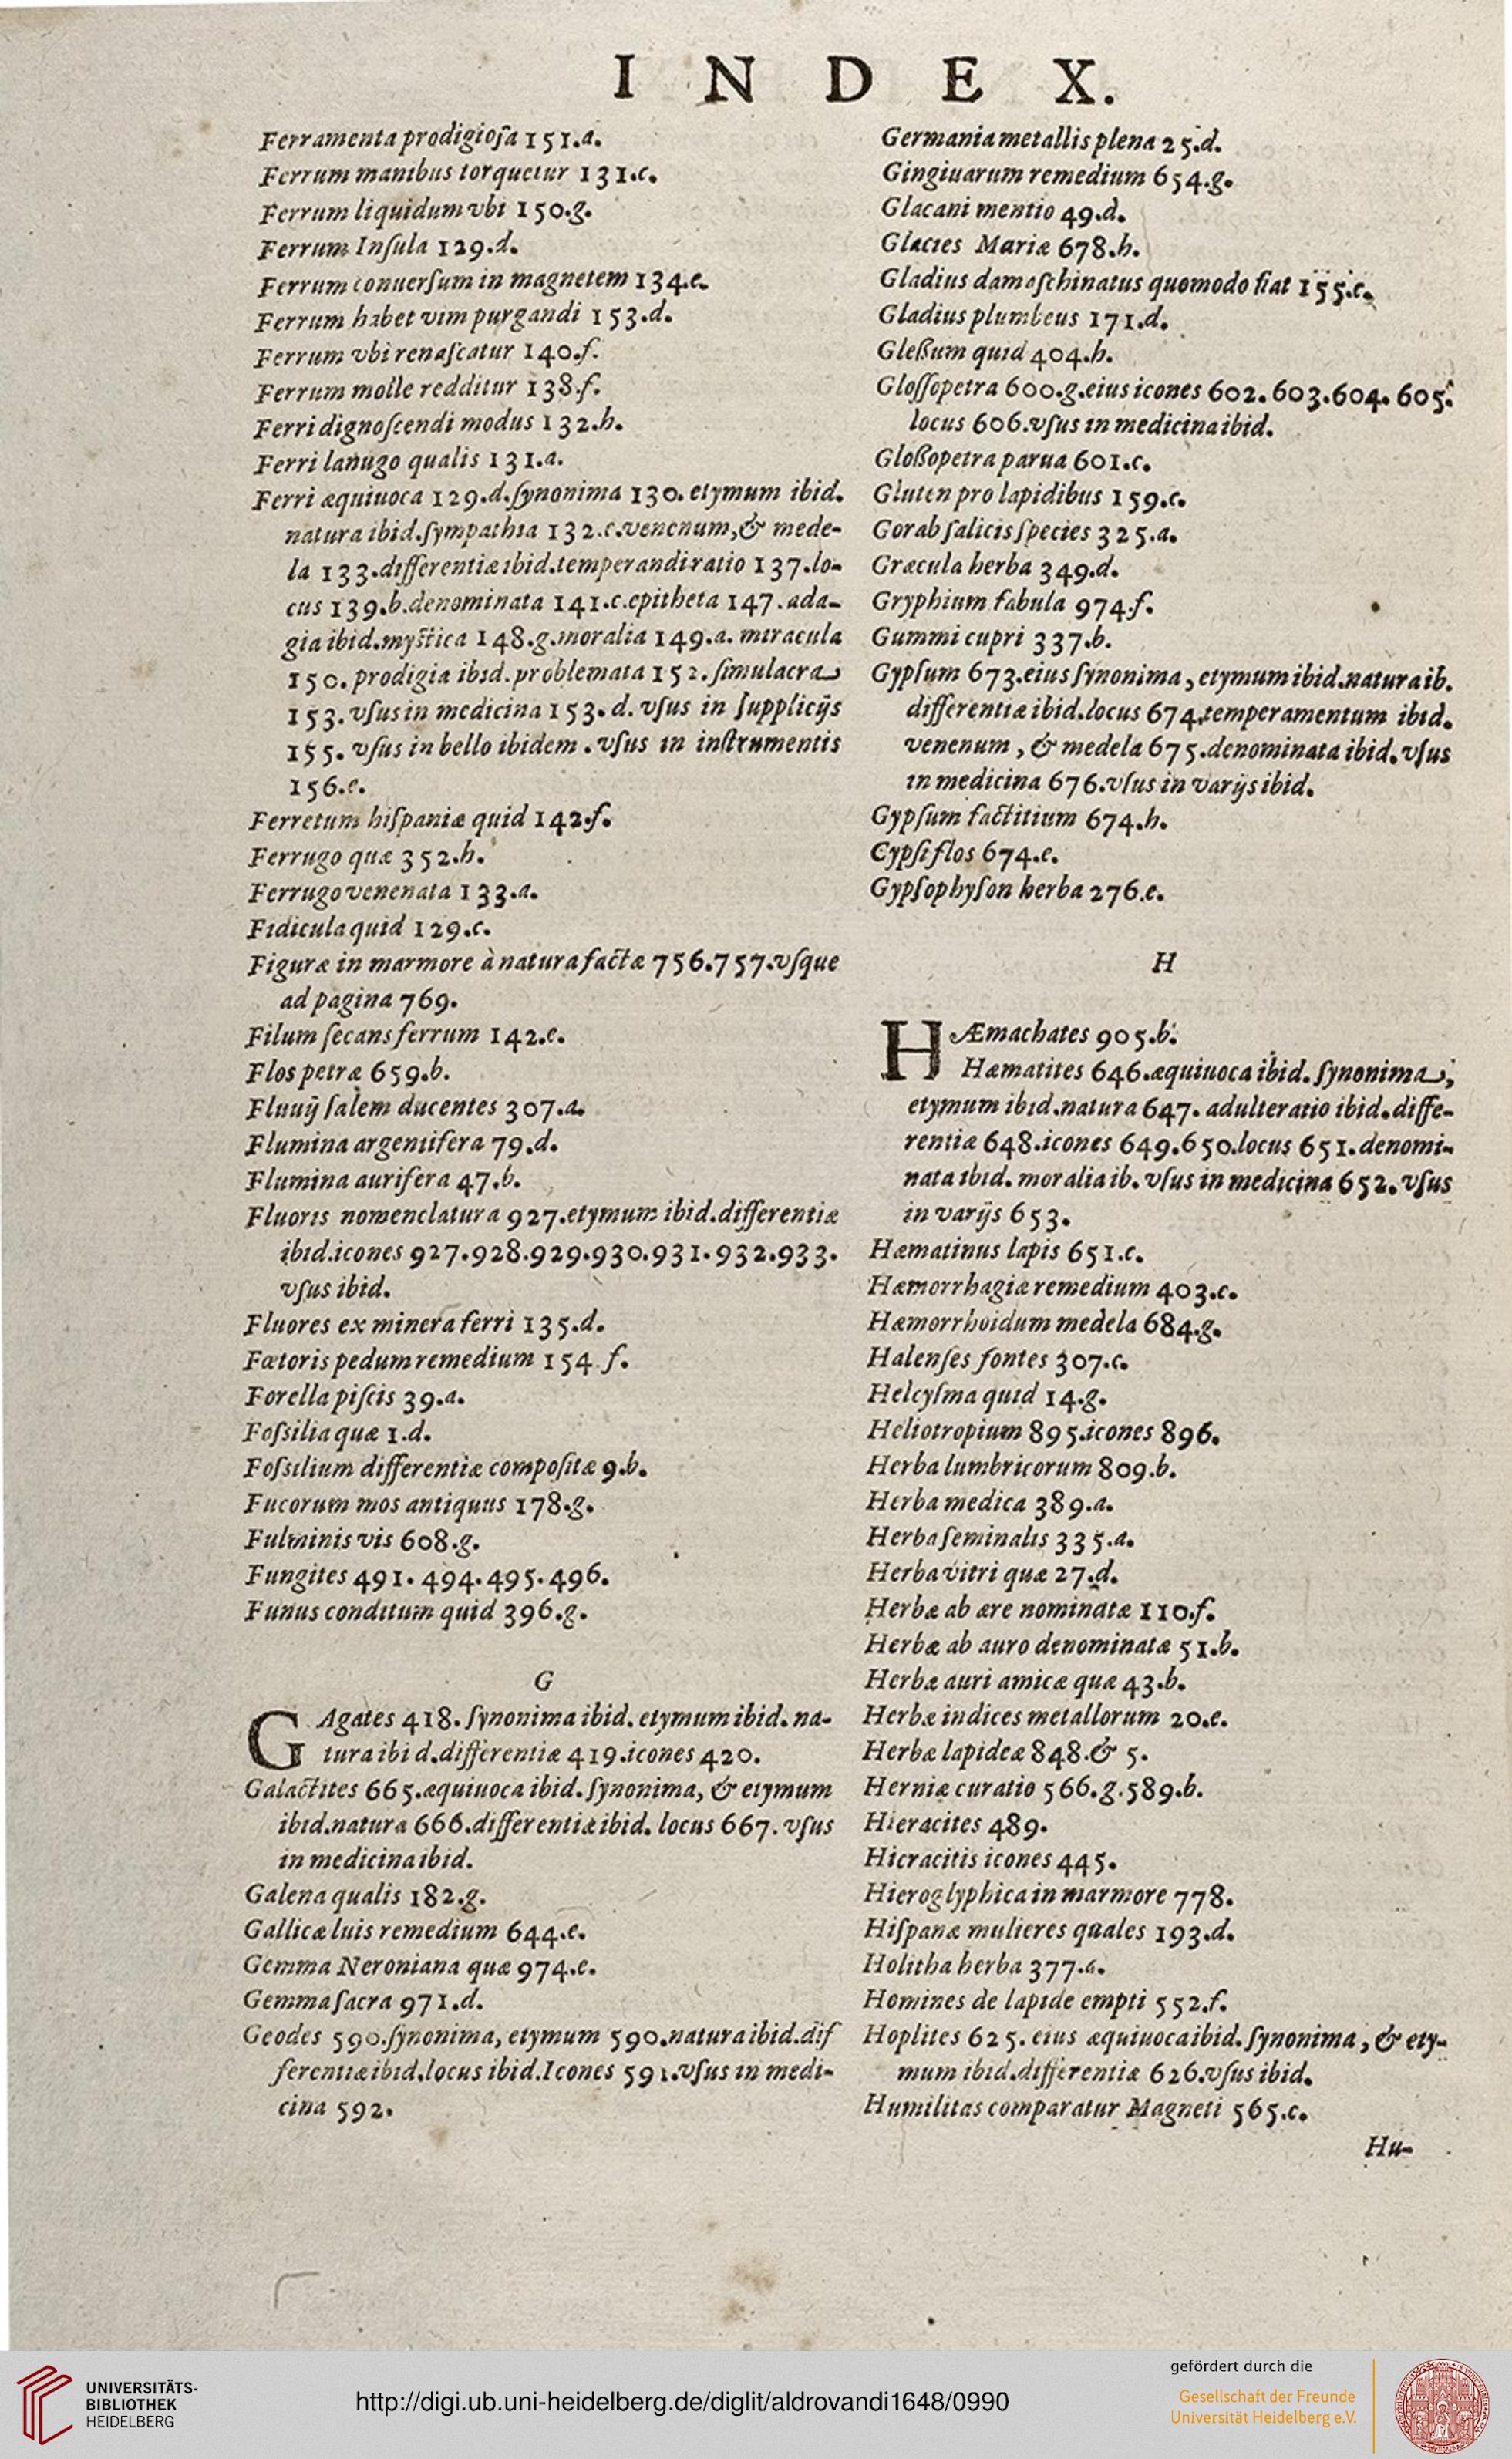 INDEX.
Ferramenta prodigioſa 151.a.
Ferrum manibus torquetur 131.c.
Ferrum liquidum vbi 150.g.
Ferrum Inſula 129.d.
Ferrum conuerſum in magnetem 134.e.
Ferrum habet vim purgandi 153.d.
Ferrum vbi renaſcatur 140.f.
Ferrum molle redditur 138.f.
Ferri dignoſcendi modus 132.h.
Ferri lanugo qualis 131.a.
Ferri æquiuoca 129.d.ſynonima 130. etymum ibid.
natura ibid.ſympathia 132.c.venenum,& mede-
la 133.differentiæ ibid.temperandi ratio 137.lo-
cus 139.b.denominata 141.c.epitheta 147.ada-
gia ibid.myſtica 148.g.moralia 149.a. miracula
150. prodigia ibid.problemata 152. ſimulacra
153. vſus in medicina 153. d. vſus in ſupplicijs
155. vſus in bello ibidem . vſus in inſtrumentis
156.e.
Ferretum hiſpaniæ quid 142.f.
Ferrugo quæ 352.h.
Ferrugo venenata 133.a.
Fidicula quid 129.c.
Figuræ in marmore à natura factæ 756.757.vſque
ad pagina 769.
Filum ſecans ferrum 142.e.
Flos petræ 659.b.
Fluuij ſalem ducentes 307.a.
Flumina argentifera 79.d.
Flumina aurifera 47.b.
Fluoris nomenclatura 927.etymum ibid.differentiæ
ibid.icones 927.928.929.930.931.932.933.
vſus ibid.
Fluores ex minera ferri 135.d.
Fœtoris pedum remedium 154.f.
Forella piſcis 39.a.
Foſsilia quæ 1.d.
Foſsilium differentiæ compoſitæ 9.b.
Fucorum mos antiquus 178.g.
Fulminis vis 608.g.
Fungites 491. 494. 495. 496.
Funus conditum quid 396.g.
G
GAgates 418. ſynonima ibid. etymum ibid. na-
tura ibi d.differentiæ 419.icones 420.
Galactites 665.æquiuoca ibid. ſynonima, & etymum
ibid.natura 666.differentiæ ibid. locus 667. vſus
in medicina ibid.
Galena qualis 182.g.
Gallicæ luis remedium 644.e.
Gemma Neroniana quæ 974.e.
Gemma ſacra 971.d.
Geodes 590.ſynonima, etymum 590.natura ibid.dif
ferentiæ ibid.locus ibid.Icones 591.vſus in medi-
cina 592.
Germania metallis plena 25.d.
Gingiuarum remedium 654.g.
Glacani mentio 49.d.
Glacies Mariæ 678.h.
Gladius damaſchinatus quomodo fiat 155.c.
Gladius plumbeus 171.d.
Gleßum quid 404.h.
Gloſſopetra 600.g.eius icones 602. 603.604. 605.
locus 606.vſus in medicina ibid.
Gloßopetra parua 601.c.
Gluten pro lapidibus 159.c.
Gorab ſalicis ſpecies 325.a.
Græcula herba 349.d.
Gryphium fabula 974.f.
Gummi cupri 337.b.
Gypſum 673.eius ſynonima, etymum ibid.natura ib.
differentiæ ibid.locus 674.temperamentum ibid.
venenum , & medela 675.denominata ibid.vſus
in medicina 676.vſus in varijs ibid.
Gypſum factitium 674.h.
Cypſi flos 674.e.
Gypſophyſon herba 276.e.
H
HÆmachates 905.b.
Hæmatites 646.æquiuoca ibid. ſynonima,
etymum ibid.natura 647. adulteratio ibid.diffe-
rentiæ 648.icones 649.650.locus 651.denomi-
nata ibid. moralia ib. vſus in medicina 652. vſus
in varijs 653.
Hæmatinus lapis 651.c.
Hæmorrhagiæ remedium 403.c.
Hæmorrhoidum medela 684.g.
Halenſes fontes 307.c.
Helcyſma quid 14.g.
Heliotropium 895.icones 896.
Herba lumbricorum 809.b.
Herba medica 389.a.
Herba ſeminalis 335.a.
Herba vitri quæ 27.d.
Herbæ ab ære nominatæ 110.f.
Herbæ ab auro denominatæ 51.b.
Herbæ auri amicæ quæ 43.b.
Herbæ indices metallorum 20.e.
Herbæ lapideæ 848.& 5.
Herniæ curatio 566.g.589.b.
Hieracites 489.
Hicracitis icones 445.
Hieroglyphica in marmore 778.
Hiſpanæ mulieres quales 193.d.
Holitha herba 377.a.
Homines de lapide empti 552.f.
Hoplites 625. eius æquiuoca ibid. ſynonima , & ety-
mum ibid.differentiæ 626.vſus ibid.
Humilitas comparatur Magneti 565.c.
Hu-
UNIVERSITÄTS-
BIBLIOTHEK
HEIDELBERG
http://digi.ub.uni-heidelberg.de/diglit/aldrovandi1648/0990
gefördert durch die
Gesellschaft der Freunde
Universität Heidelberg e.V.